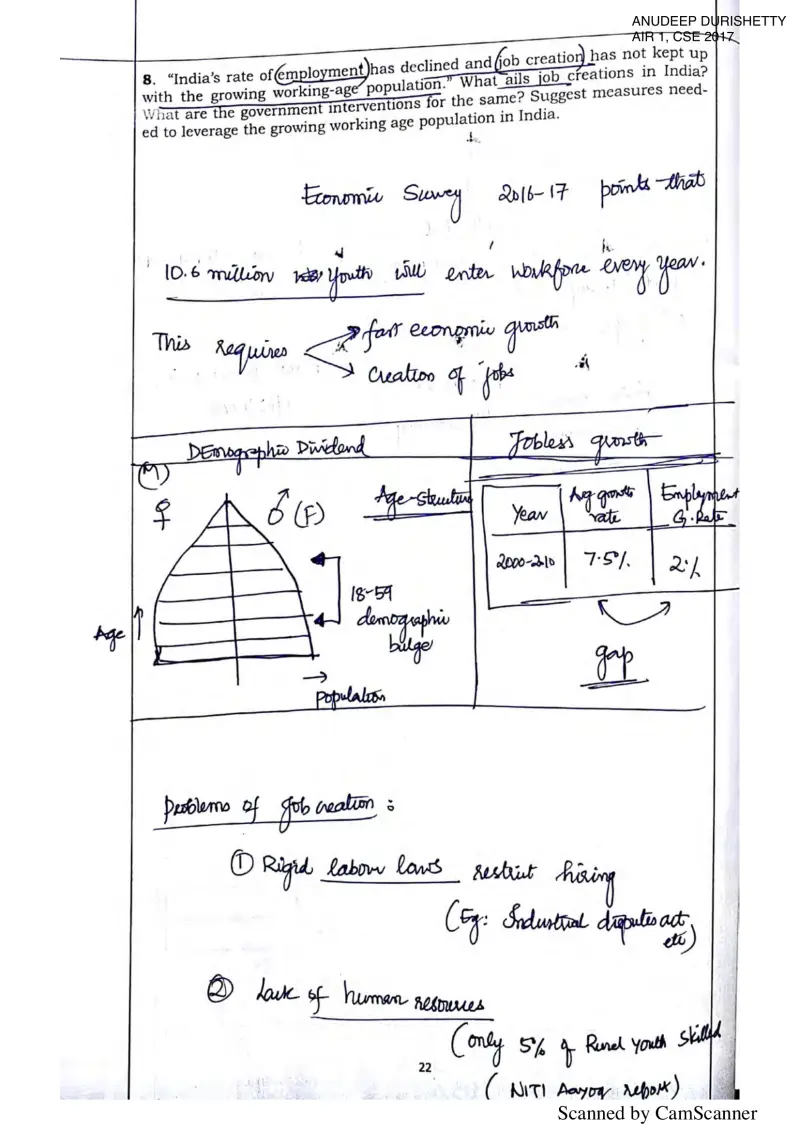 ANUDEEP DURISHETTY
AIR 1, CSE 2017
8. "India's rate of employment has declined and job creation has not kept up
with the growing working-age population." What ails job creations in India?
What are the government interventions for the same? Suggest measures need-
ed to leverage the growing working age population in India.
Economic Survey 2016-17 points that
10.6 million youth will enter workforce every year.
This requires
fast economic growth
Creation of jobs
DEmographic Dividend
Jobless growth
(M)
♀
♂ (F)
Age-structure
Age
18-59
demographic
bulge
Population
Year
Avg growth
rate
Employment
G. Rate
2000-2010
7.5%
2%
gap
Problems of job creation :
① Rigid labour laws restrict hiring
(Eg: Industrial disputes act,
etc)
② Lack of human resources
(only 5% of Rural youth skilled
(NITI Aayog report)
22
Scanned by CamScanner